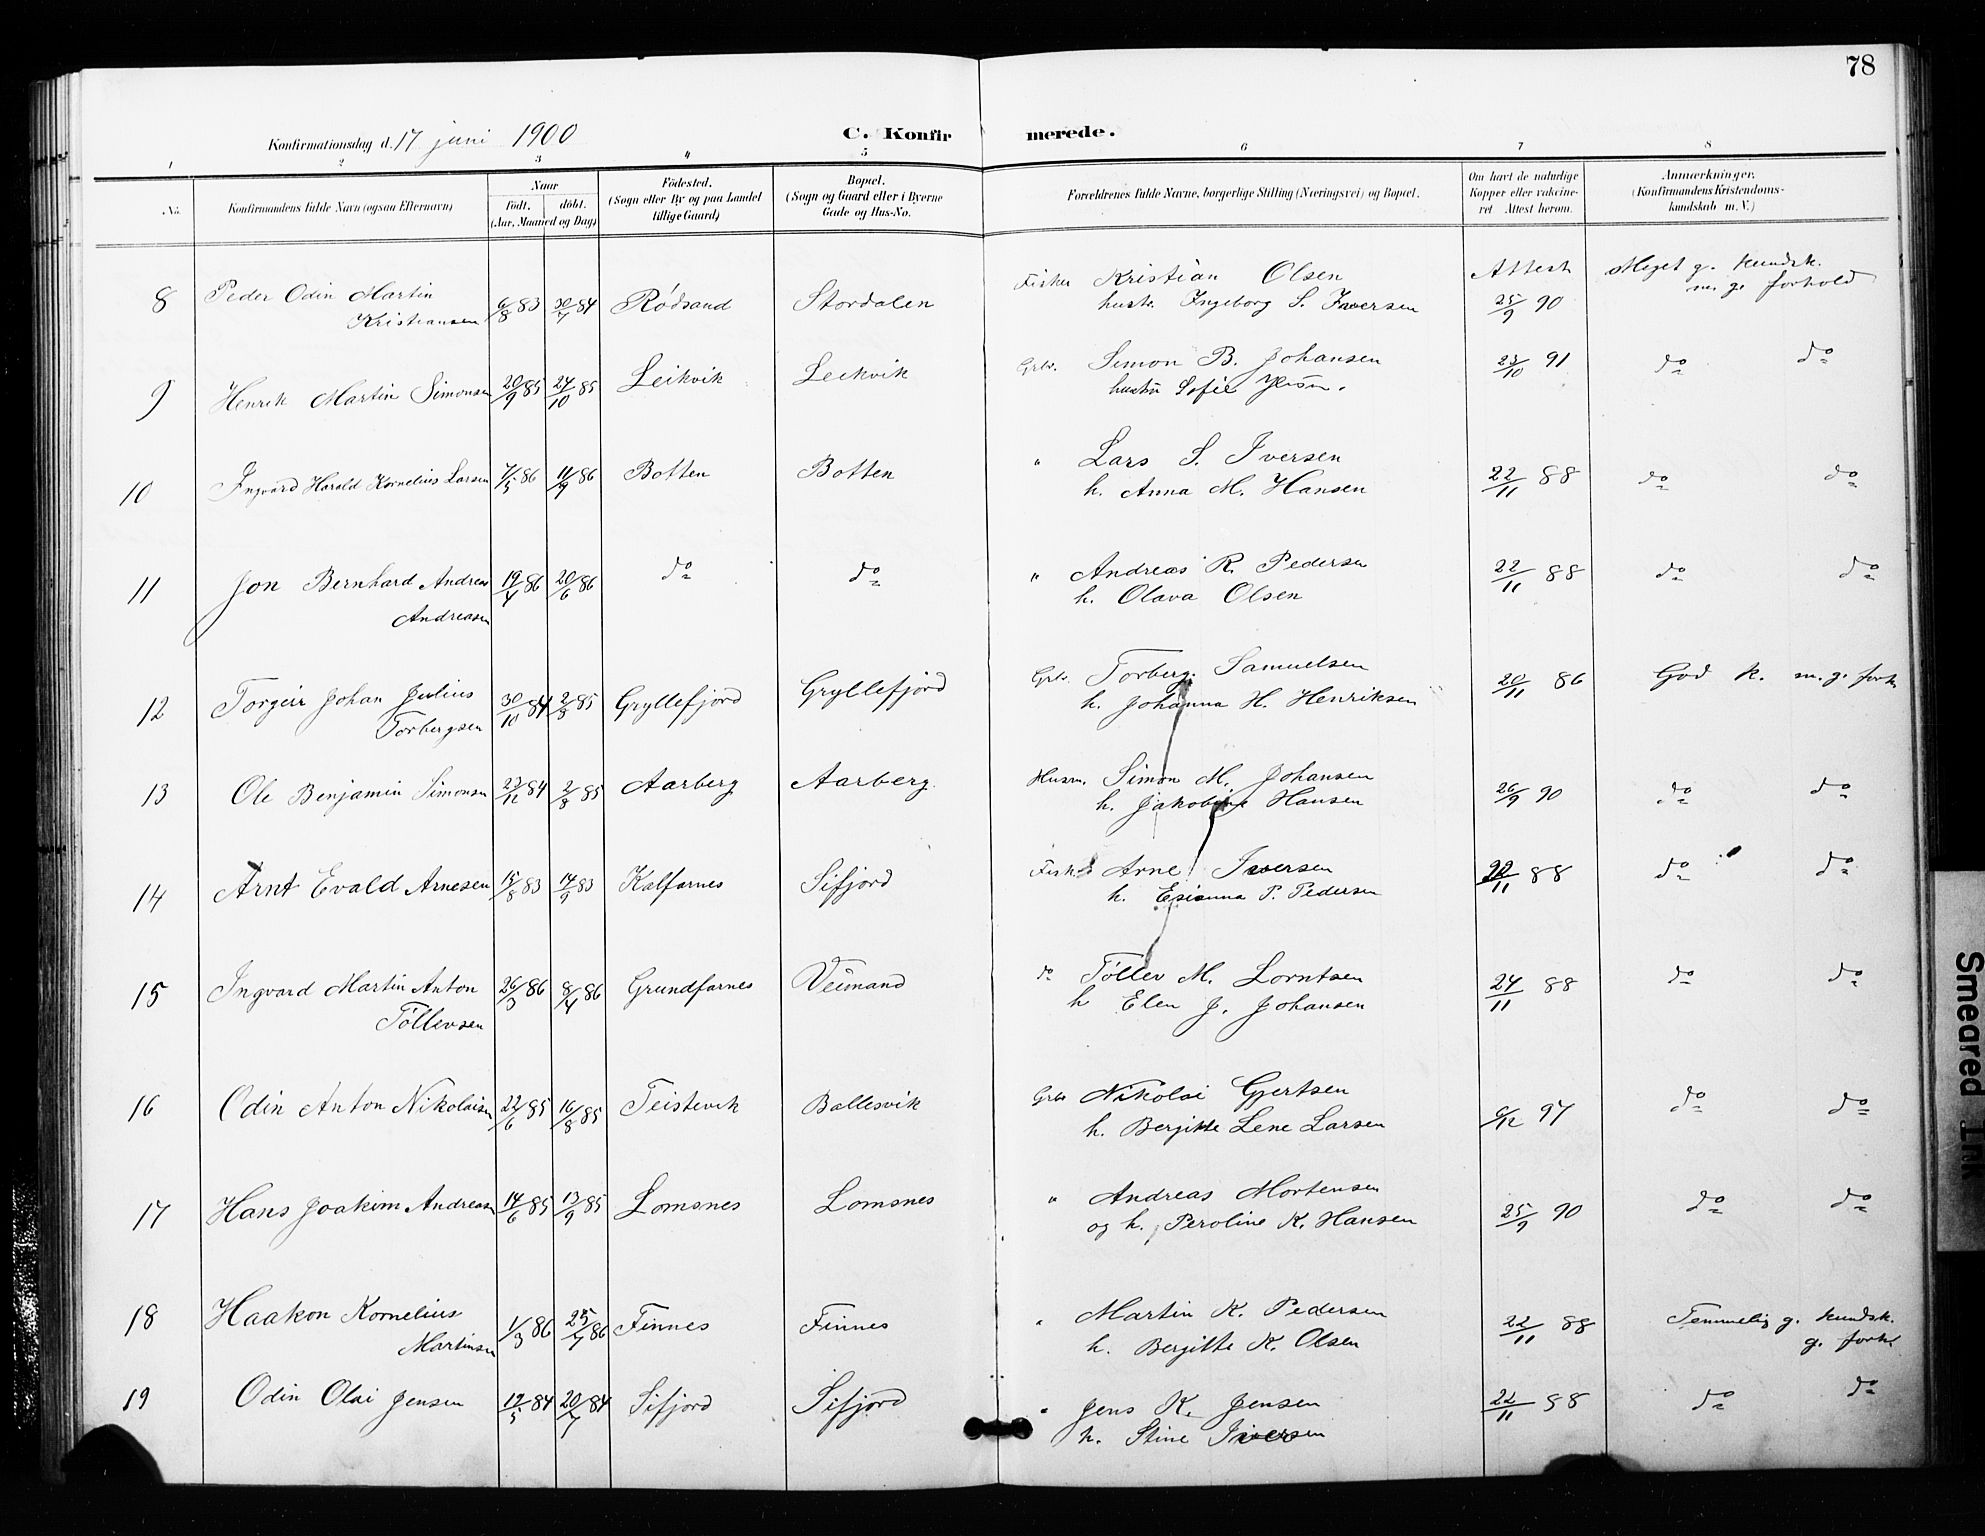 78
Konfirmationsdag d. 17 juni 1900
C. Konfirmerede.
1 2 3 4 5 6 7 8
No.
Konfirmandens fulde Navn (ogsaa Efternavn)
Naar
født. døbt.
(Aar, Maaned og Dag)
Fødested.
(Sogn eller By og paa Landet
tillige Gaard)
Bopæl.
(Sogn og Gaard eller i Byerne
Gade og Hus-No.
Forældrenes fulde Navne, borgerlige Stilling (Næringsvei) og Bopæl.
Om havt de naturlige
Kopper eller vaccine-
ret. Attest herom.
Anmærkninger.
(Konfirmandens Kristendoms-
kundskab m. V.)
8 Peder Odin Martin Kristiansen 6/8 83 30/7 84 Rødsand Stordalen Fisker Kristian Olsen
hustr. Ingeborg S. Iversen Attest 25/9 90 Meget g. kundsk. m. g. forhold
9 Henrik Martin Simonsen 20/9 85 24/10 85 Leikvik Leikvik Grbr. Simon B. Johansen
hustru Sofie 23/10 91 do do
10 Ingvard Harald Kornelius Larsen 7/5 86 11/9 86 Botten Botten " Lars S. Iversen
h. Anna M. Hansen 22/11 88 do do
11 Jon Bernhard Andreas Andreasen 19/4 86 20/6 86 do do " Andreas R. Pedersen
h. Olava Olsen 22/11 88 do do
12 Torgeir Johan Julius Torbergsen 30/10 84 2/8 85 Gryllefjord Gryllefjord Grbr. Torberg Samuelsen
h. Johanna H. Henriksen 20/11 86 God k. m. g. forh.
13 Ole Benjamin Simonsen 23/12 84 2/8 85 Aarberg Aarberg. Husm. Simon M. Johansen
h. Jakobine Hansen 26/9 90 do do
14 Arnt Evald Arnesen 15/8 83 14/9 83 Kalfarnes Sifjord Fisker Arne Iversen
h. Esianna P. Pedersen 22/11 88 do do
15 Ingvard Martin Anton Töllevsen 26/3 86 8/4 86 Grundfarnes Veimand do Töllev M. Lorntsen
h Elen J. Johansen 24/11 88 do do
16 Odin Anton Nikolaisen 22/6 85 16/8 85 Teistevik Ballesvik Grbr Nikolai Gjertsen
h. Bergitte Lene Larsen 6/12 97 do do
17 Hans Joakim Andreasen 14/6 85 13/9 85 Lomsnes Lomsnes " Andreas Mortensen
og h. Peroline K. Hansen 25/9 90 do do
18 Haakon Kornelius Martinsen 1/3 86 25/7 86 Finnes Finnes " Martin K. Pedersen
h. Bergitte K. Olsen 22/11 88 Temmelig g. kundsk. g. forh.
19 Odin Olai Jensen 19/5 84 20/7 84 Sifjord Sifjord " Jens K. Jensen
h. Stine Iversen 22/11 88 do do
Smeared Ink